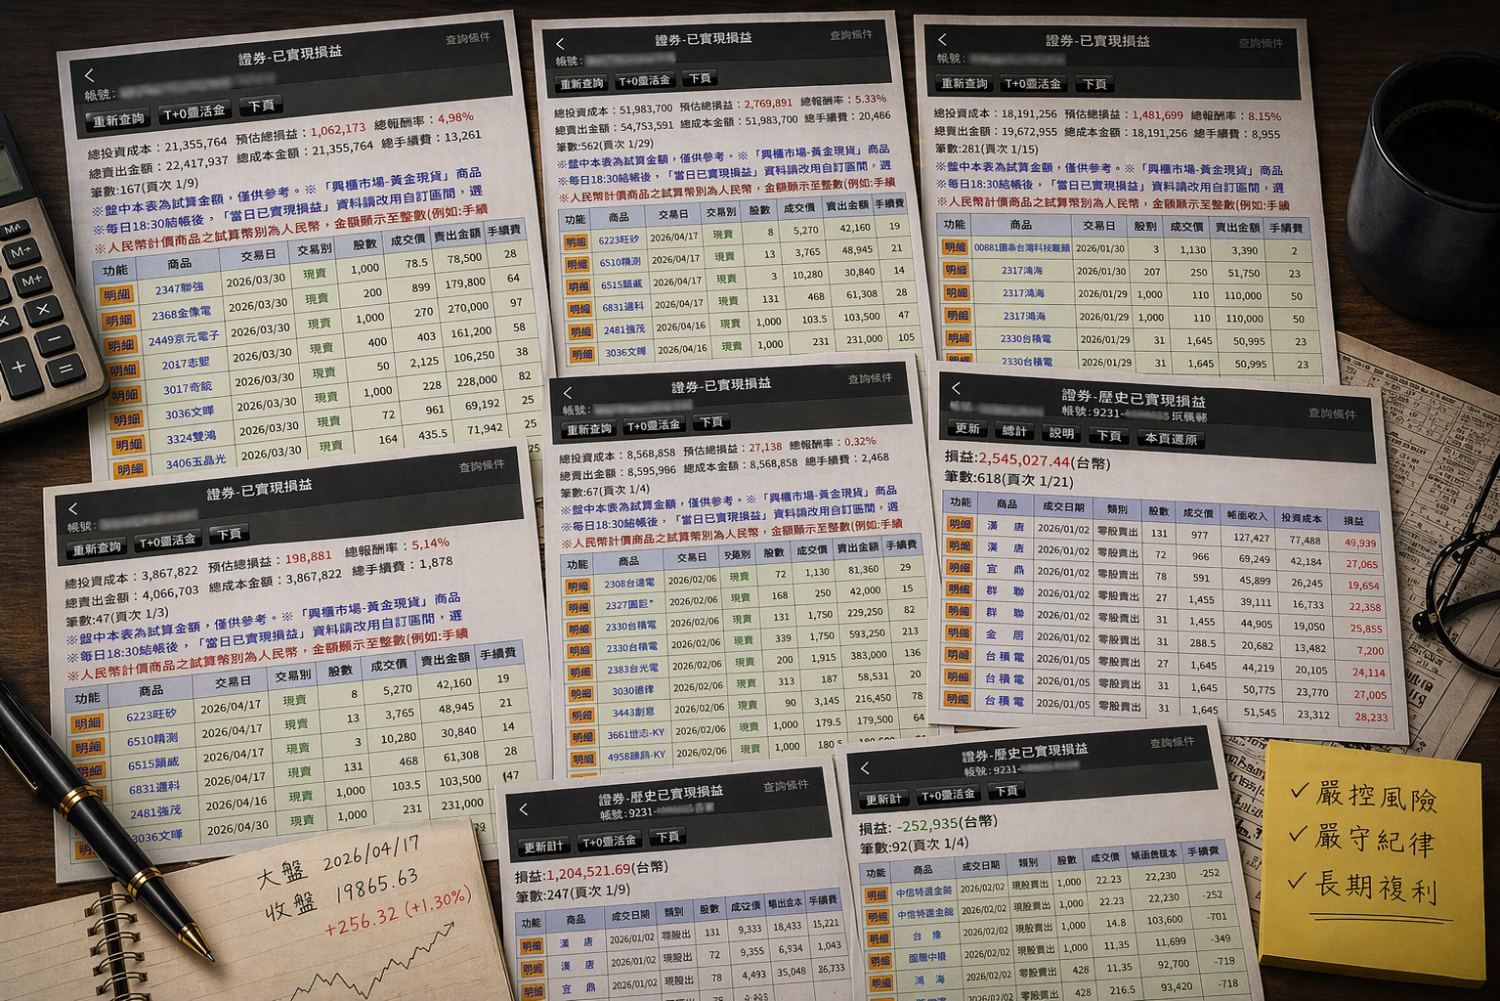 證券-已實現損益
查詢條件
帳號:
重新查詢 T+0靈活金 下頁
總投資成本：21,355,764 預估總損益：1,062,173 總報酬率：4,98%
總賣出金額：22,417,937 總成本金額：21,355,764 總手續費：13,261
筆數:167(頁次 1/9)
※盤中本表為試算金額，僅供參考。※「興櫃市場-黃金現貨」商品
※每日18:30結帳後，「當日已實現損益」資料請改用自訂區間，選
※人民幣計價商品之試算幣別為人民幣，金額顯示至整數(例如:手續
功能 商品 交易日 交易別 股數 成交價 賣出金額 手續費
明細 2347聯強 2026/03/30 現賣 1,000 78.5 78,500 28
明細 2368金像電 2026/03/30 現賣 200 899 179,800 64
明細 2449京元電子 2026/03/30 現賣 1,000 270 270,000 97
明細 2017志聖 2026/03/30 現賣 400 403 161,200 58
明細 3017奇鋐 2026/03/30 現賣 50 2,125 106,250 38
明細 3036文曄 2026/03/30 現賣 1,000 228 228,000 82
明細 3324雙鴻 2026/03/30 現賣 72 961 69,192 25
明細 3406玉晶光 2026/03/30 現賣 164 435.5 71,942 25
證券-已實現損益
查詢條件
帳號:
重新查詢 T+0靈活金 下頁
總投資成本：51,983,700 預估總損益：2,769,891 總報酬率：5.33%
總賣出金額：54,753,591 總成本金額：51,983,700 總手續費：20,486
筆數:562(頁次 1/29)
※盤中本表為試算金額，僅供參考。※「興櫃市場-黃金現貨」商品
※每日18:30結帳後，「當日已實現損益」資料請改用自訂區間，選
※人民幣計價商品之試算幣別為人民幣，金額顯示至整數(例如:手續
功能 商品 交易日 交易別 股數 成交價 賣出金額 手續費
明細 6223旺矽 2026/04/17 現賣 8 5,270 42,160 19
明細 6510精測 2026/04/17 現賣 13 3,765 48,945 21
明細 6515 2026/04/17 現賣 3 10,280 30,840 14
明細 6831邁科 2026/04/17 現賣 131 468 61,308 28
明細 2481強茂 2026/04/16 現賣 1,000 103.5 103,500 47
明細 3036文曄 2026/04/16 現賣 1,000 231 231,000 105
證券-已實現損益
查詢條件
帳號:
重新查詢 T+0靈活金 下頁
總投資成本：18,191,256 預估總損益：1,481,699 總報酬率：8.15%
總賣出金額：19,672,955 總成本金額：18,191,256 總手續費：8,955
筆數:281(頁次 1/15)
※盤中本表為試算金額，僅供參考。※「興櫃市場-黃金現貨」商品
※每日18:30結帳後，「當日已實現損益」資料請改用自訂區間，選
※人民幣計價商品之試算幣別為人民幣，金額顯示至整數(例如:手續
功能 商品 交易日 股別 成交價 賣出金額 手續費
明細 00881國泰台灣科技龍頭 2026/01/30 3 1,130 3,390 2
明細 2317鴻海 2026/01/30 207 250 51,750 23
明細 2317鴻海 2026/01/29 1,000 110 110,000 50
明細 2317鴻海 2026/01/29 1,000 110 110,000 50
明細 2330台積電 2026/01/29 31 1,645 50,995 23
明細 2330台積電 2026/01/29 31 1,645 50,995 23
證券-已實現損益
查詢條件
帳號:
重新查詢 T+0靈活金 下頁
總投資成本：3,867,822 預估總損益：198,881 總報酬率：5,14%
總賣出金額：4,066,703 總成本金額：3,867,822 總手續費：1,878
筆數:47(頁次 1/3)
※盤中本表為試算金額，僅供參考。※「興櫃市場-黃金現貨」商品
※每日18:30結帳後，「當日已實現損益」資料請改用自訂區間，選
※人民幣計價商品之試算幣別為人民幣，金額顯示至整數(例如:手續
功能 商品 交易日 交易別 股數 成交價 賣出金額 手續費
明細 6223旺矽 2026/04/17 現賣 8 5,270 42,160 19
明細 6510精測 2026/04/17 現賣 13 3,765 48,945 21
明細 6515 2026/04/17 現賣 3 10,280 30,840 14
明細 6831邁科 2026/04/17 現賣 131 468 61,308 28
明細 2481強茂 2026/04/16 現賣 1,000 103.5 103,500 47
3036文曄 2026/04/16 現賣 1,000 231 231,000
證券-已實現損益
查詢條件
帳號:
重新查詢 T+0靈活金 下頁
總投資成本：8,568,858 預估總損益：27,138 總報酬率：0,32%
總賣出金額：8,595,996 總成本金額：8,568,858 總手續費：2,468
筆數:67(頁次 1/4)
※盤中本表為試算金額，僅供參考。※「興櫃市場-黃金現貨」商品
※每日18:30結帳後，「當日已實現損益」資料請改用自訂區間，選
※人民幣計價商品之試算幣別為人民幣，金額顯示至整數(例如:手續
功能 商品 交易日 交易別 股數 成交價 賣出金額 手續費
明細 2308台達電 2026/02/06 現賣 72 1,130 81,360 29
明細 2327國巨* 2026/02/06 現賣 168 250 42,000 15
明細 2330台積電 2026/02/06 現賣 131 1,750 229,250 82
明細 2330台積電 2026/02/06 現賣 339 1,750 593,250 213
明細 2383台光電 2026/02/06 現賣 200 1,915 383,000 136
明細 3030德律 2026/02/06 現賣 313 187 58,531 20
明細 3443創意 2026/02/06 現賣 90 3,145 216,450 78
明細 3661世芯-KY 2026/02/06 現賣 1,000 179.5 179,500 64
明細 4958臻鼎-KY 2026/02/06 現賣 1,000 180.5
證券-歷史已實現損益
查詢條件
帳號:9231-
更新 總計 說明 下頁 本頁還原
損益:2,545,027.44(台幣)
筆數:618(頁次 1/21)
功能 商品 成交日 類別 股數 成交價 帳面收入 投資成本 損益
明細 漢唐 2026/01/02 零股賣出 131 977 127,427 77,488 49,939
明細 漢唐 2026/01/02 零股賣出 72 966 69,249 42,184 27,065
明細 宜鼎 2026/01/02 零股賣出 78 591 45,899 26,245 19,654
明細 群聯 2026/01/02 零股賣出 27 1,455 39,111 16,733 22,358
明細 群聯 2026/01/02 零股賣出 31 1,455 44,905 19,050 25,855
明細 金居 2026/01/05 零股賣出 31 288.5 20,682 13,482 7,200
明細 台積電 2026/01/05 零股賣出 27 1,645 44,219 20,105 24,114
明細 台積電 2026/01/05 零股賣出 31 1,645 50,775 23,770 27,005
明細 台積電 2026/01/05 零股賣出 31 1,645 51,545 23,312 28,233
證券-歷史已實現損益
查詢條件
帳號:9231-
更新計 T+0靈活金 下頁
損益:1,204,521.69(台幣)
筆數:247(頁次 1/9)
功能 商品 成交日期 類別 股數 成交價 15,221
明細 漢唐 2026/01/02 零股賣出 131 9,333 18,433
明細 漢唐 2026/01/02 零股賣出 72 9,355 6,934 1,043
明細 宜鼎 2026/01/02 零股賣出 78 4,493 35,048 26,733
證券-歷史已實現損益
查詢條件
帳號:9231-
更新計 T+0靈活金 下頁
損益: -252,935(台幣)
筆數:92(頁次 1/4)
功能 商品 成交日期 類別 股數 成交價 手續費
明細 中信特選金融 2026/02/02 現股賣出 1,000 22.23 22,230 -252
明細 中信特選金融 2026/02/02 現股賣出 1,000 22.23 22,230 -252
明細 2026/02/02 現股賣出 1,000 14.8 103,600 -701
明細 2026/02/02 現股賣出 1,000 11.35 11,699 -349
明細 鴻海 2026/02/02 零股賣出 428 11.35 92,700 -718
428 216.5 93,420 -718
大盤 2026/04/17
收盤 19865.63
+256.32 (+1.30%)
✓嚴控風險
✓嚴守紀律
✓長期複利
MA
M+
M+
×
×
−
+
=